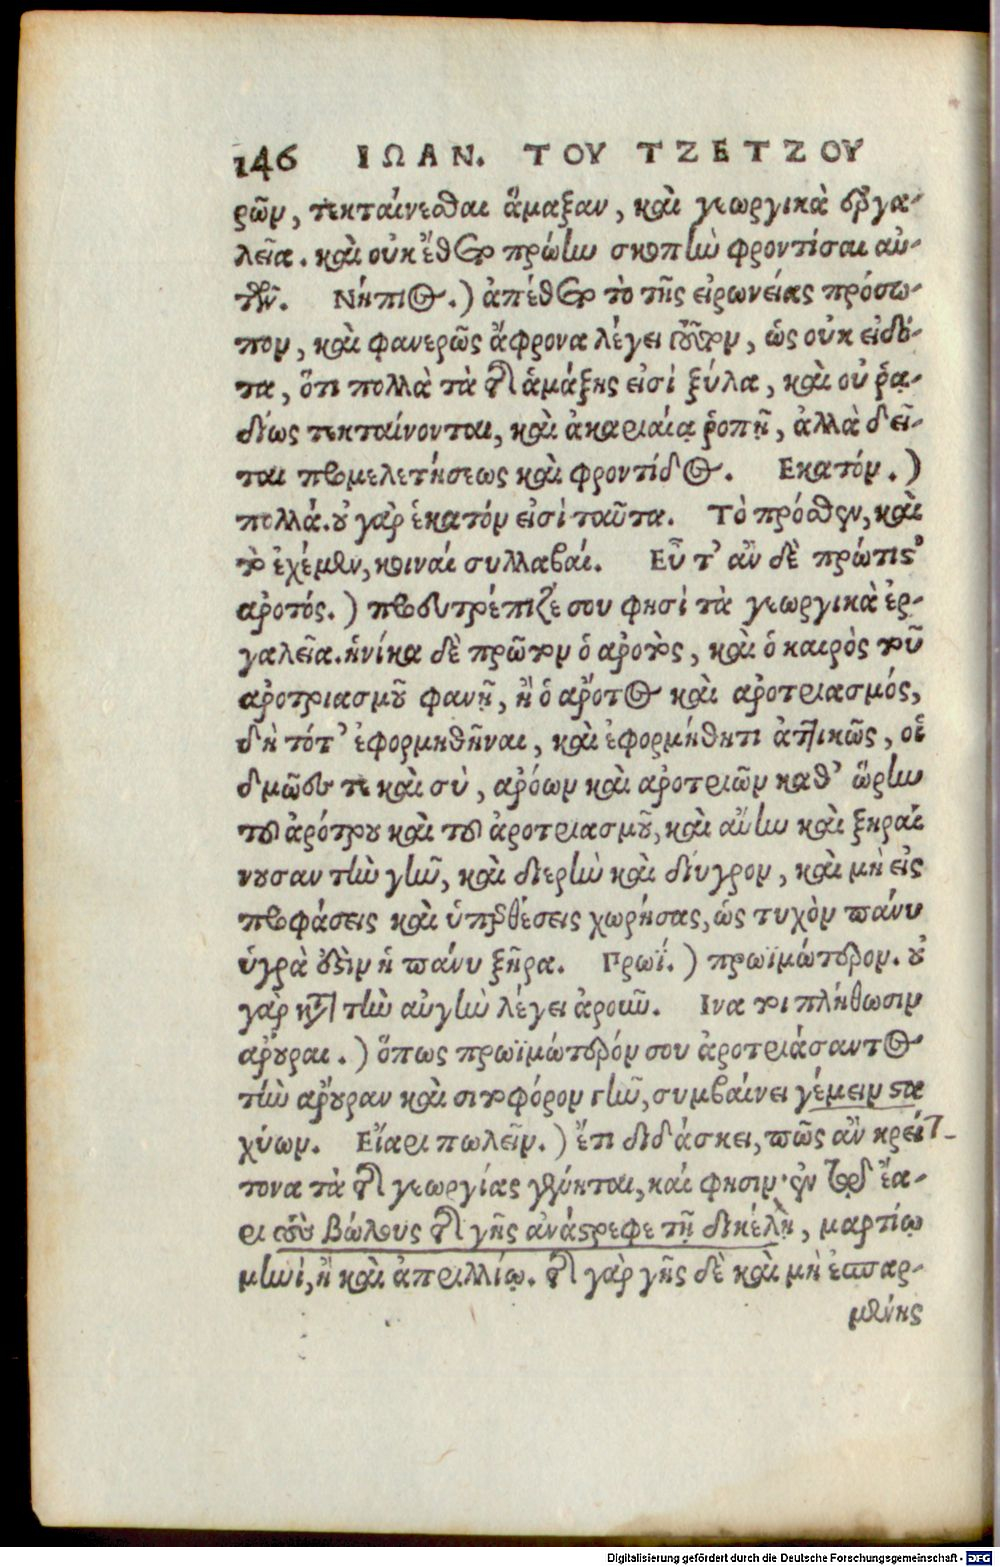 146 ΙΩΑΝ. ΤΟΥ ΤΖΕΤΖΟΥ
ρῶν, τεκταίνεσθαι ἅμαξαν, καὶ γεωργικὰ ἐργα-
λεῖα. καὶ οὐκ ἔθετο πρώτην σκοπὴν φροντίσαι αὐ-
τῶν. Νήπιος.) ἀπέθετο τὸ τῆς εἰρωνείας πρόσω-
πον, καὶ φανερῶς ἄφρονα λέγει τοῦτον, ὡς οὐκ εἰδό-
τα, ὅτι πολλὰ τὰ τῆς ἁμάξης εἰσὶ ξύλα, καὶ οὐ ῥᾳ-
δίως τεκταίνονται, καὶ ἀκαριαίᾳ ῥοπῇ, ἀλλὰ δεῖ-
ται προμελετήσεως καὶ φροντίδος. Εκατόν.)
πολλά. οὐ γὰρ ἑκατόν εἰσὶ ταῦτα. Τὸ πρόσθεν, καὶ
τὸ ἐχόμενον, κοιναὶ συλλαβαί. Εὖ τ' ἂν δὲ πρώτιστ'
ἀροτός.) προευτρέπιζέ σου φησὶ τὰ γεωργικὰ ἐρ-
γαλεῖα. ἡνίκα δὲ πρῶτον ὁ ἀροτὸς, καὶ ὁ καιρὸς τοῦ
ἀροτριασμοῦ φανῇ, ἢ ὁ ἄροτος καὶ ἀροτριασμός,
δὴ τότ' ἐφορμηθῆναι, καὶ ἐφορμήθητι ἀττικῶς, οἱ
δμῶές τε καὶ σὺ, ἀρόων καὶ ἀροτριῶν καθ' ὥρην
τοῦ ἀρότρου καὶ τοῦ ἀροτριασμοῦ, καὶ αὔην καὶ ξηραί
νουσαν τὴν γῆν, καὶ διερὴν καὶ δίυγρον, καὶ μὴ εἰς
προφάσεις καὶ ὑπερθέσεις χωρήσας, ὡς τυχὸν πάνυ
ὑγρὰ οὖσιν ἢ πάνυ ξηρα. Πρωΐ.) πρωϊμώτερον. οὐ
γὰρ κατὰ τὴν αὐγὴν λέγει ἀροῦν. Ινα τοι πλήθωσιν
ἄρουραι.) ὅπως πρωϊμώτερόν σου ἀροτριάσαντος
τὴν ἄρουραν καὶ σιτοφόρον γῆν, συμβαίνει γέμειν στα
χύων. Εἴαρι πολεῖν.) ἔτι διδάσκει, πῶς ἂν κρείτ-
τονα τὰ τῆς γεωργίας γένηται, καί φησιν· ἐν τῷ δὲ ἔα-
ρι τοὺς βώλους τῆς γῆς ἀνάστρεφε τῇ δικέλλῃ, μαρτίῳ
μηνὶ, ἢ καὶ ἀπριλλίῳ. τῆς γὰρ γῆς δὲ καὶ μὴ ἐσπαρ-
μένης
Digitalisierung gefördert durch die Deutsche Forschungsgemeinschaft - DFG